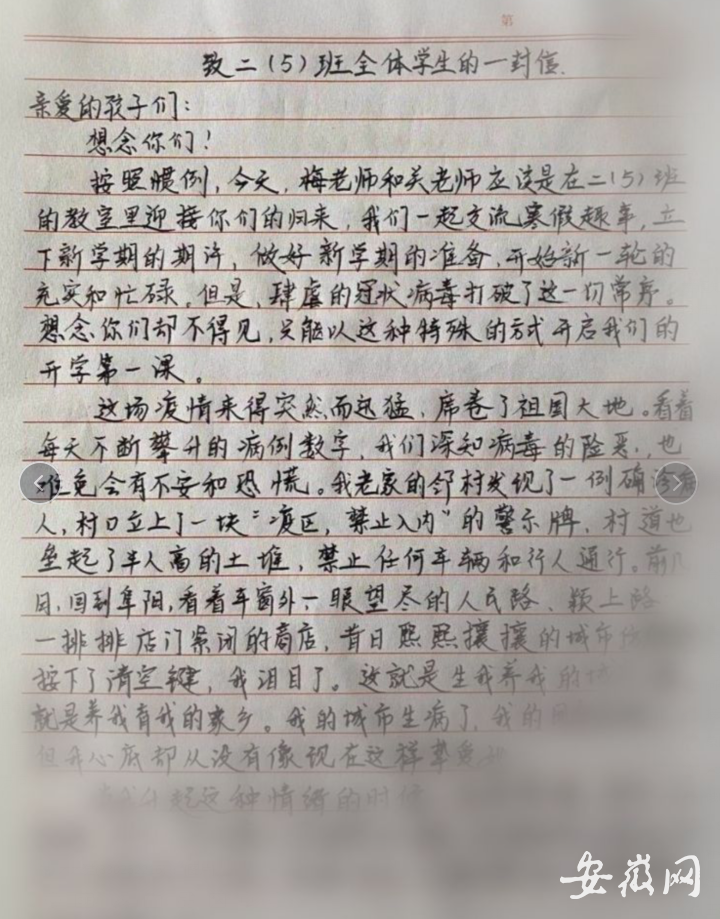 第
致二(5)班全体学生的一封信.
亲爱的孩子们:
想念你们!
按照惯例,今天,梅老师和关老师应该是在二(5)班
的教室里迎接你们的归来,我们一起交流寒假趣事,立
下新学期的期许,做好新学期的准备,开始新一轮的
充实和忙碌,但是,肆虐的冠状病毒打破了这一切常序。
想念你们却不得见,只能以这种特殊的方式开启我们的
开学第一课。
这场疫情来得突然而迅猛,席卷了祖国大地。看着
每天不断攀升的病例数字,我们深知病毒的险恶,也
难免会有不安和恐慌。我老家的邻村发现了一例确诊病
人,村口立上了一块“疫区,禁止入内”的警示牌,村道也
垒起了半人高的土堆,禁止任何车辆和行人通行。前几
日,回到阜阳,看着车窗外,一眼望尽的人民路、颍上路
一排排店门紧闭的商店,昔日熙熙攘攘的城市
按下了清空键,我泪目了。这就是生我养我的城
就是养我育我的家乡。我的城市生病了,我的
但我心底却从没有像现在这样挚爱
我升起这种情绪的时候
安徽网